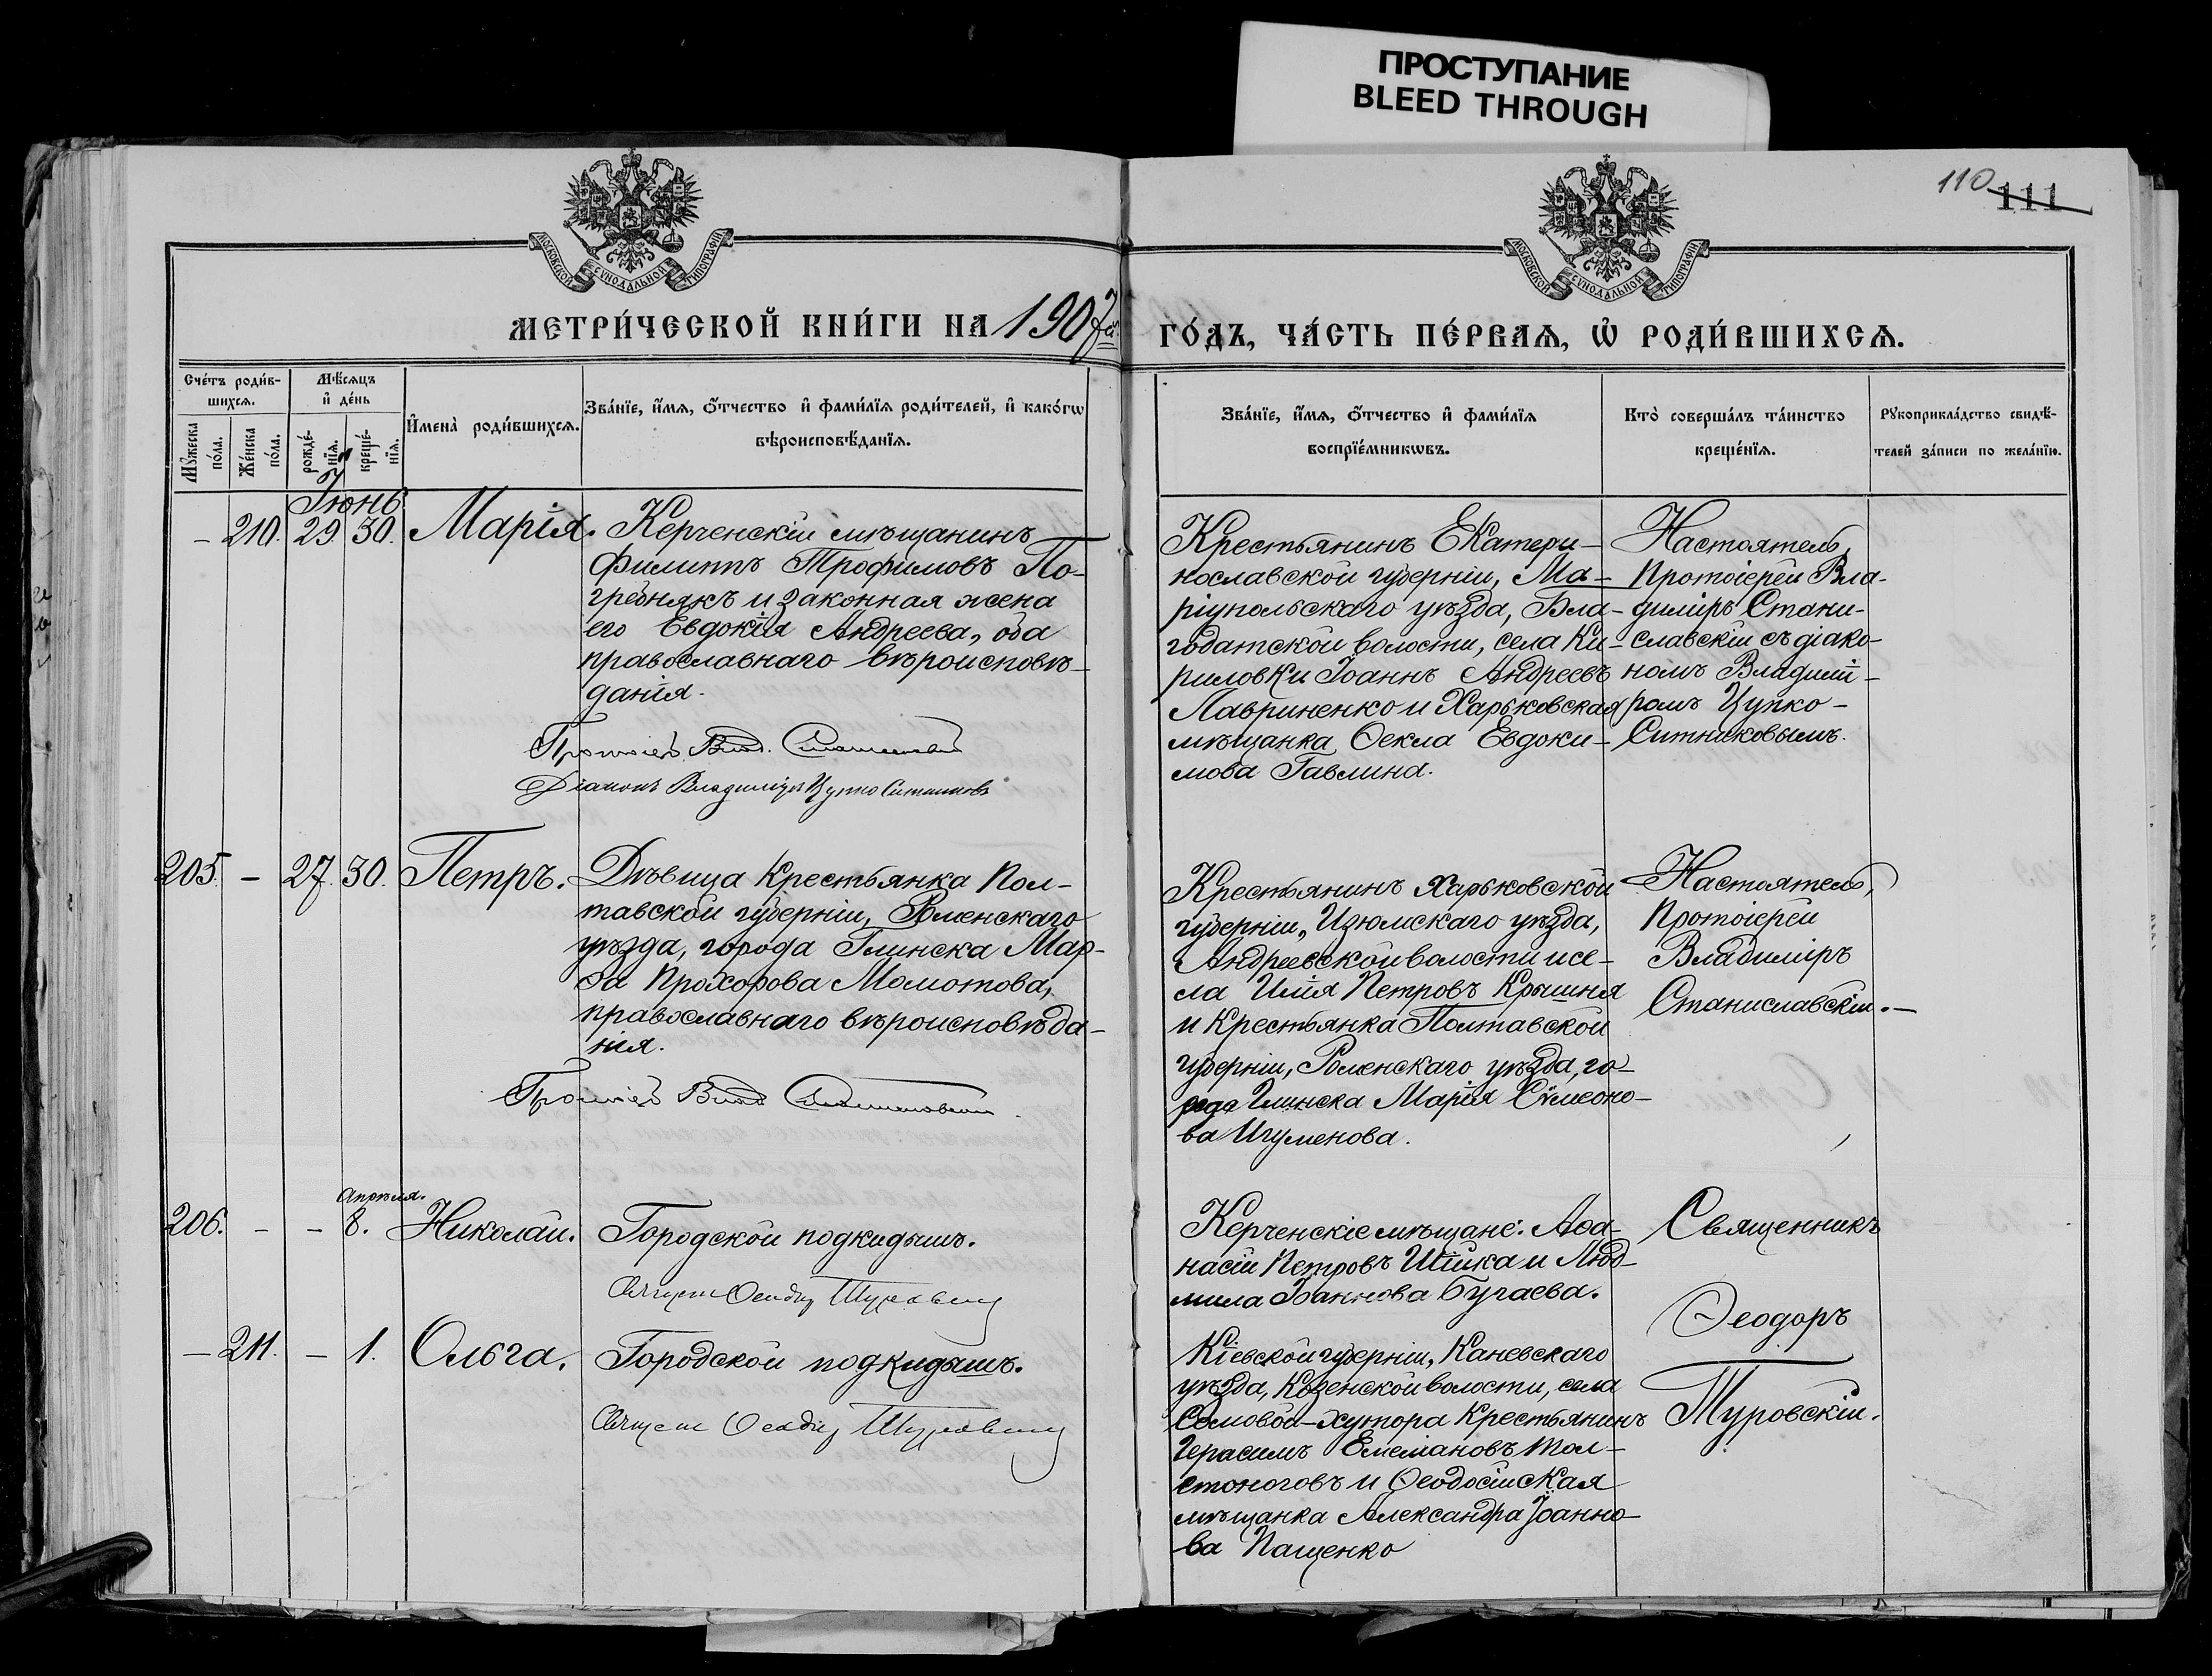 ПРОСТУПАНИЕ
BLEED THROUGH
110 111
МОСКОВСКОЙ СѴНОДАЛЬНОЙ ТИПОГРАФІИ
МОСКОВСКОЙ СѴНОДАЛЬНОЙ ТИПОГРАФІИ
МЕТРИ́ЧЕСКОЙ КНИ́ГИ НА 1907й
ГО́ДЪ, ЧА́СТЬ ПЕ́РВАѦ, Ѡ҆ РОДИ́ВШИХСѦ.
Сче́тъ роди́в-
шихсѧ.
Мꙋ́жеска по́ла.
Же́нска по́ла.
Мѣ́сѧцъ
и҆ де́нь
рожде́-нїѧ.
креще́-нїѧ.
И҆мена̀ роди́вшихсѧ.
Зва́нїе, и҆́мѧ, ѻ҆́тчество и҆ фами́лїѧ роди́телей, и҆ како́гѡ
вѣроисповѣ́данїѧ.
Зва́нїе, и҆́мѧ, ѻ҆́тчество и҆ фами́лїѧ
воспрїе́мникѡвъ.
Кто̀ соверша́лъ та́инство
креще́нїѧ.
Рꙋкоприкла́дство свидѣ́-
телей за́писи по жела́нїю.
Іюнь
– 210. 29. 30. Марія.
Керченскій мѣщанинъ
Филиппъ Трофимовъ По-
гребнякъ и законная жена
его Евдокія Андреева, оба
православнаго вѣроисповѣ-
данія.
Протоіер. Влад. Станиславскій
Діаконъ Владиміръ Цупко Ситниковъ
Крестьянинъ Екатери-
нославской губерніи, Ма-
ріупольскаго уѣзда, Бла-
годатской волости, села Ки-
риловки Іоаннъ Андреевъ
Лавриненко и Харьковская
мѣщанка Ѳекла Евдоки-
мова Гавлина.
Настоятель,
Протоіерей Вла-
димиръ Стани-
славскій съ діако-
номъ Владимі-
ромъ Цупко-
Ситниковымъ.
205. – 27. 30. Петръ.
Дѣвица Крестьянка Пол-
тавской губерніи, Роменскаго
уѣзда, города Глинска Мар-
ѳа Прохорова Момотова,
православнаго вѣроисповѣда-
нія.
Протоіер Влад Станиславскій
Крестьянинъ Харьковской
губерніи, Изюмскаго уѣзда,
Андреевской волости и се-
ла Илія Петровъ Крышня
и Крестьянка Полтавской
губерніи, Роменскаго уѣзда, го-
рода Глинска Марія Сѵмеоно-
ва Игуменова.
Настоятель,
Протоіерей
Владиміръ
Станиславскій.–
Апрѣля.
206. – – 8. Николай.
Городской подкидышъ.
Священ Ѳеодор Туровскій
Керченскіе мѣщане: Аѳа-
насій Петровъ Шійка и Люд-
мила Іоаннова Бугаева.
Священникъ
Ѳеодоръ
Туровскій.
– 211. – 1. Ольга.
Городской подкидышъ.
Священ Ѳеодор Туровскій
Кіевской губерніи, Каневскаго
уѣзда, Козенской волости, села
хутора Крестьянинъ
Герасимъ Емеліановъ Тол-
стоноговъ и Ѳеодосійская
мѣщанка Александра Іоанно-
ва Пащенко